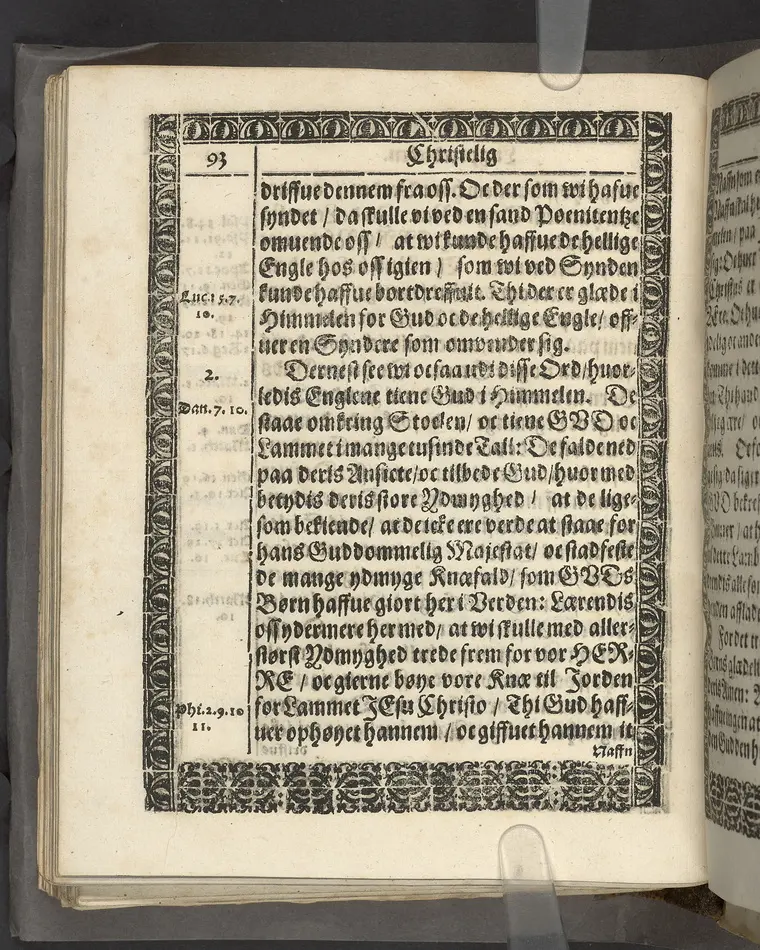 93
Christelig
driffue dennem fra oss. Oc der som wi hafue
syndet / da skulle vi ved en sand Poenitentze
omuende oss / at wi kunde haffue de hellige
Engle hos oss igien / som wi ved Synden
Luc. 15. 7.
kunde haffue bortdreffuit. Thi der er glæde i
10.
Himmelen for Gud oc de hellige Engle / off-
uer en Syndere som omvender sig.
2.
Dernest see wi ocsaa udi disse Ord / huor-
ledis Englene tiene Gud i Himmelen. De
Dan. 7. 10.
staae omkring Stoelen / oc tiene GVD oc
Lammet i mange tusinde Tall: De falde ned
paa deris Ansicte / oc tilbede Gud / huor med
betydis deris store Ydmyghed / at de lige-
som bekiende / at de icke ere verde at staae for
hans Guddommelig Majestat / oc stadfeste
de mange ydmyge Knæfald / som GVDs
Børn haffue giort her i Verden: Lærendis
oss ydermere her med / at wi skulle med aller-
størst Ydmyghed trede frem for vor HER-
RE / oc gierne bøye vore Knæ til Jorden
Phi. 2. 9. 10
for Lammet JEsu Christo / Thi Gud haff-
11.
uer ophøyet hannem / oc giffuet hannem it
Naffn